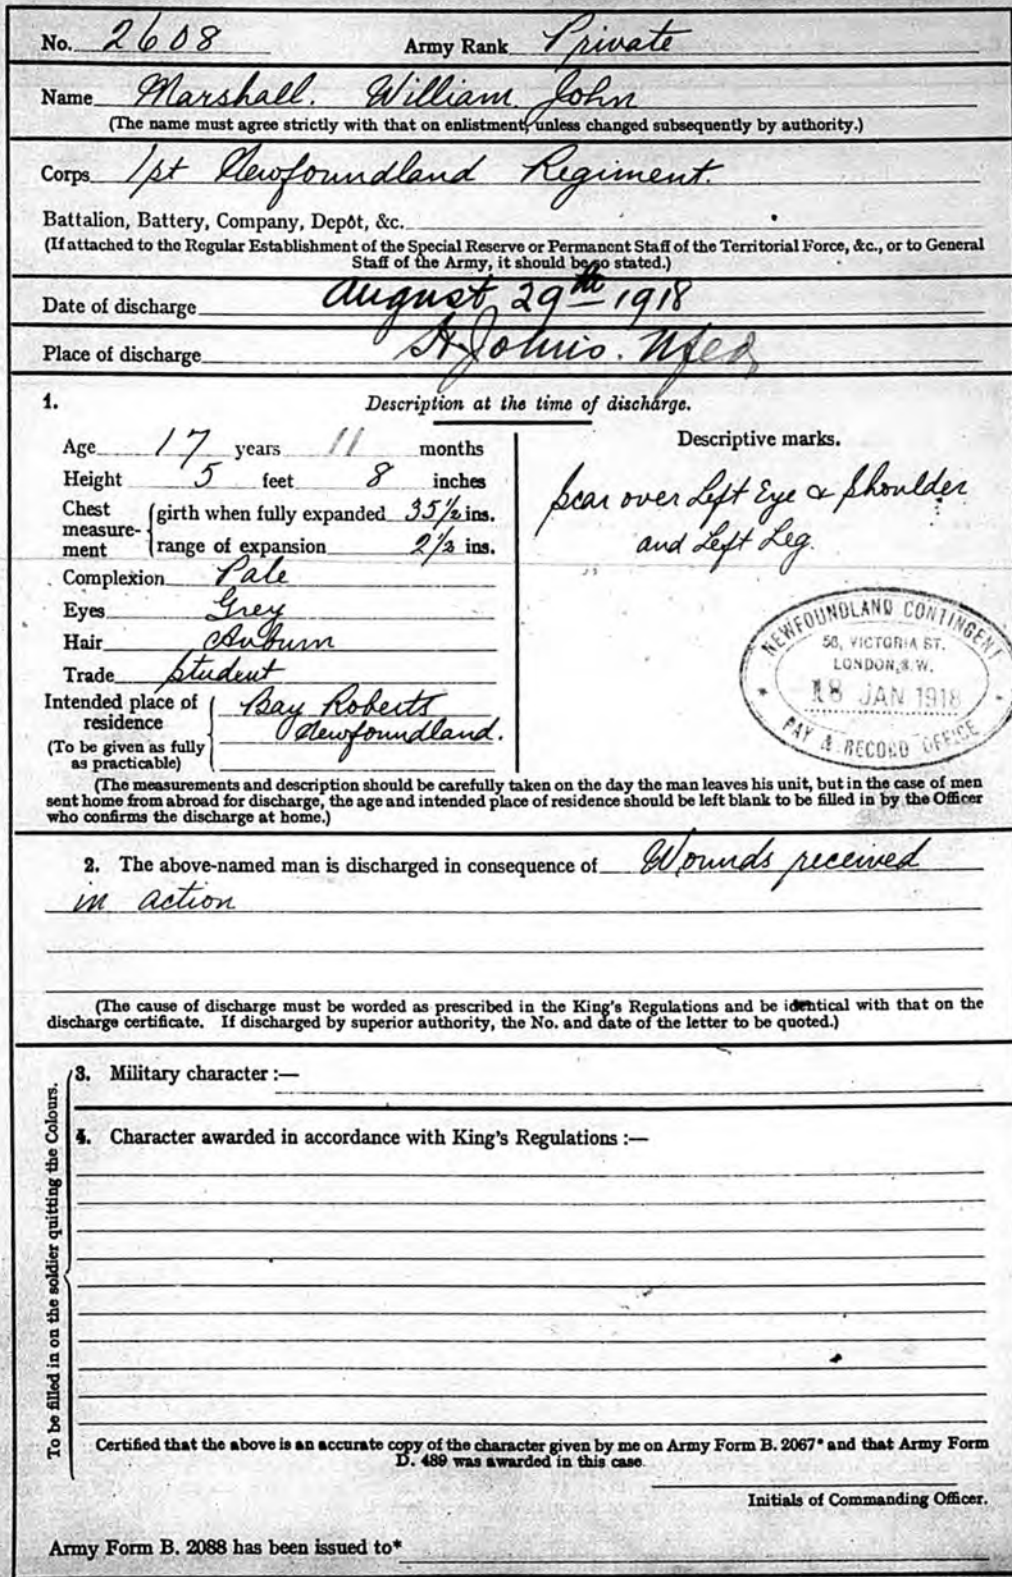 No. 2608 Army Rank Private
Name Marshall. William John
(The name must agree strictly with that on enlistment, unless changed subsequently by authority.)
Corps 1st Newfoundland Regiment.
Battalion, Battery, Company, Depôt, &c.
(If attached to the Regular Establishment of the Special Reserve or Permanent Staff of the Territorial Force, &c., or to General
Staff of the Army, it should be so stated.)
Date of discharge August 29th 1918
Place of discharge St. John's. Nfld
1. Description at the time of discharge.
Age 17 years 11 months
Height 5 feet 8 inches
Chest measure-ment girth when fully expanded 35½ ins.
range of expansion 2½ ins.
Complexion Pale
Eyes Grey
Hair Auburn
Trade Student
Intended place of residence Bay Roberts
Newfoundland.
(To be given as fully
as practicable)
Descriptive marks.
Scar over Left Eye & Shoulder
and Left Leg.
NEWFOUNDLAND CONTINGENT
58, VICTORIA ST.
LONDON, S.W.
18 JAN 1918
PAY & RECORD OFFICE
(The measurements and description should be carefully taken on the day the man leaves his unit, but in the case of men
sent home from abroad for discharge, the age and intended place of residence should be left blank to be filled in by the Officer
who confirms the discharge at home.)
2. The above-named man is discharged in consequence of Wounds received
in action
(The cause of discharge must be worded as prescribed in the King's Regulations and be identical with that on the
discharge certificate. If discharged by superior authority, the No. and date of the letter to be quoted.)
To be filled in on the soldier quitting the Colours.
3. Military character :—
4. Character awarded in accordance with King's Regulations :—
Certified that the above is an accurate copy of the character given by me on Army Form B. 2067* and that Army Form
D. 489 was awarded in this case.
Initials of Commanding Officer.
Army Form B. 2088 has been issued to*